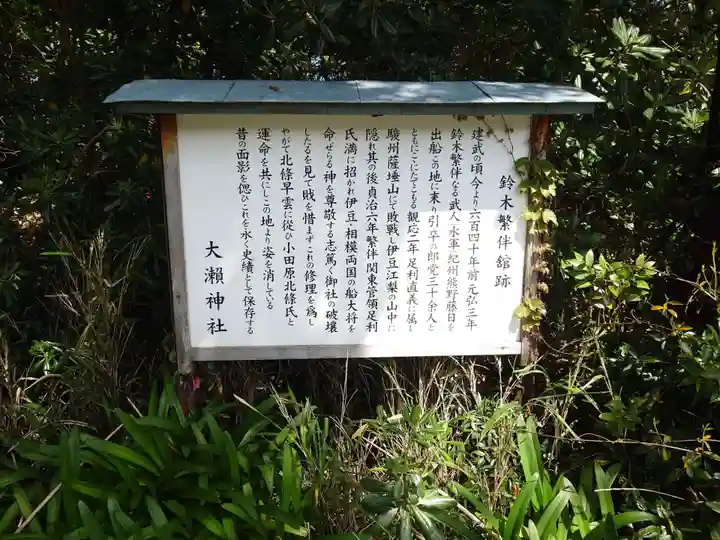 鈴木繁伴舘跡
建武の頃今より六百四十年前元弘三年
鈴木繁伴なる武人水軍紀州熊野藤白を
出船この地に来り引卒の郎党三十余人と
ともにこにたてこもる観応二年足利直義に属し
駿州薩埵山にて敗戦し伊豆江梨の山中に
隠れ其の後貞治六年繁伴関東管領足利
氏満に招かれ伊豆、相模両国の船大将を
命ぜらる神を尊敬する志篤く御社の破壊
したるを見て賎を惜まずこれの修理を為し
やがて北條早雲に従ひ小田原北條氏と
運命を共にしこの地より姿を消している
昔の面影を偲ひこれを永く史績として保存する
大瀬神社